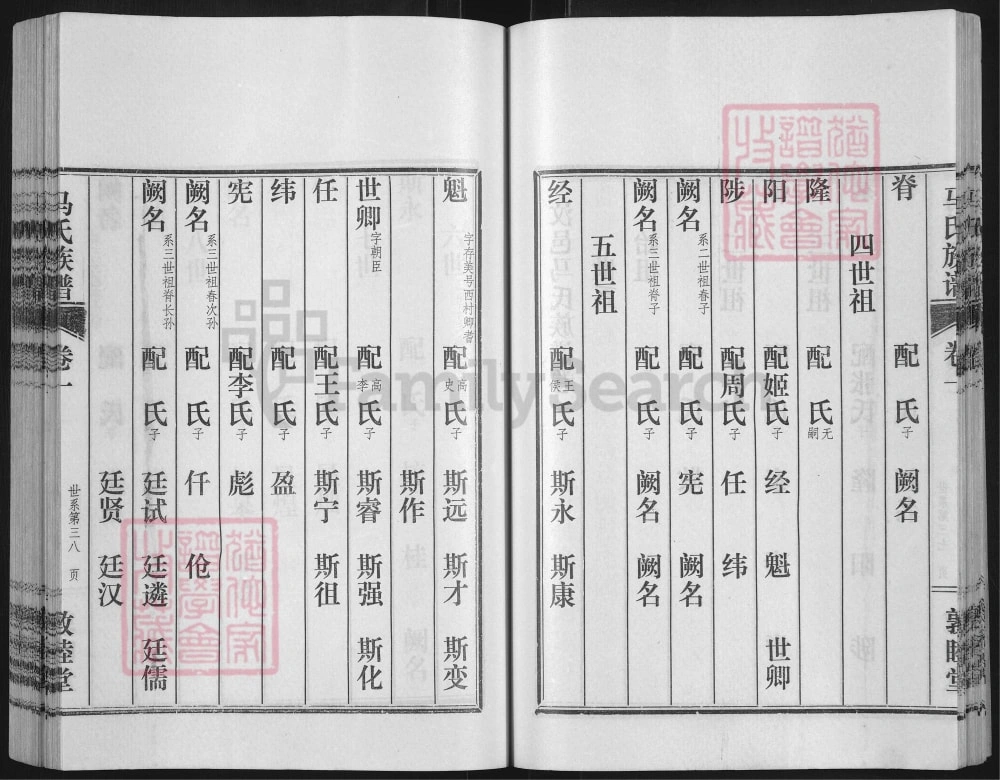 马氏族谱 卷一 敦睦堂
脊 配 氏 子 阙名
四世祖
隆 配 氏 无嗣
阳 配姬氏 子 经 魁 世卿
陟 配周氏 子 任 纬
阙名 系二世祖春子 配 氏 子 宪 阙名
阙名 系三世祖脊子 配 氏 子 阙名 阙名
五世祖
经 配王侯氏 子 斯永 斯康
魁 字存美号西村卿耆 配高史氏 子 斯远 斯才 斯变
斯作
世卿 字朝臣 配高李氏 子 斯睿 斯强 斯化
任 配王氏 子 斯宁 斯徂
纬 配 氏 子 盈
宪 配李氏 子 彪
阙名 系三世祖春次孙 配 氏 子 仟 伧
阙名 系三世祖脊长孙 配 氏 子 廷试 廷遴 廷儒
廷贤 廷汉
马氏族谱 卷一 世系第三八 页 敦睦堂
FamilySearch